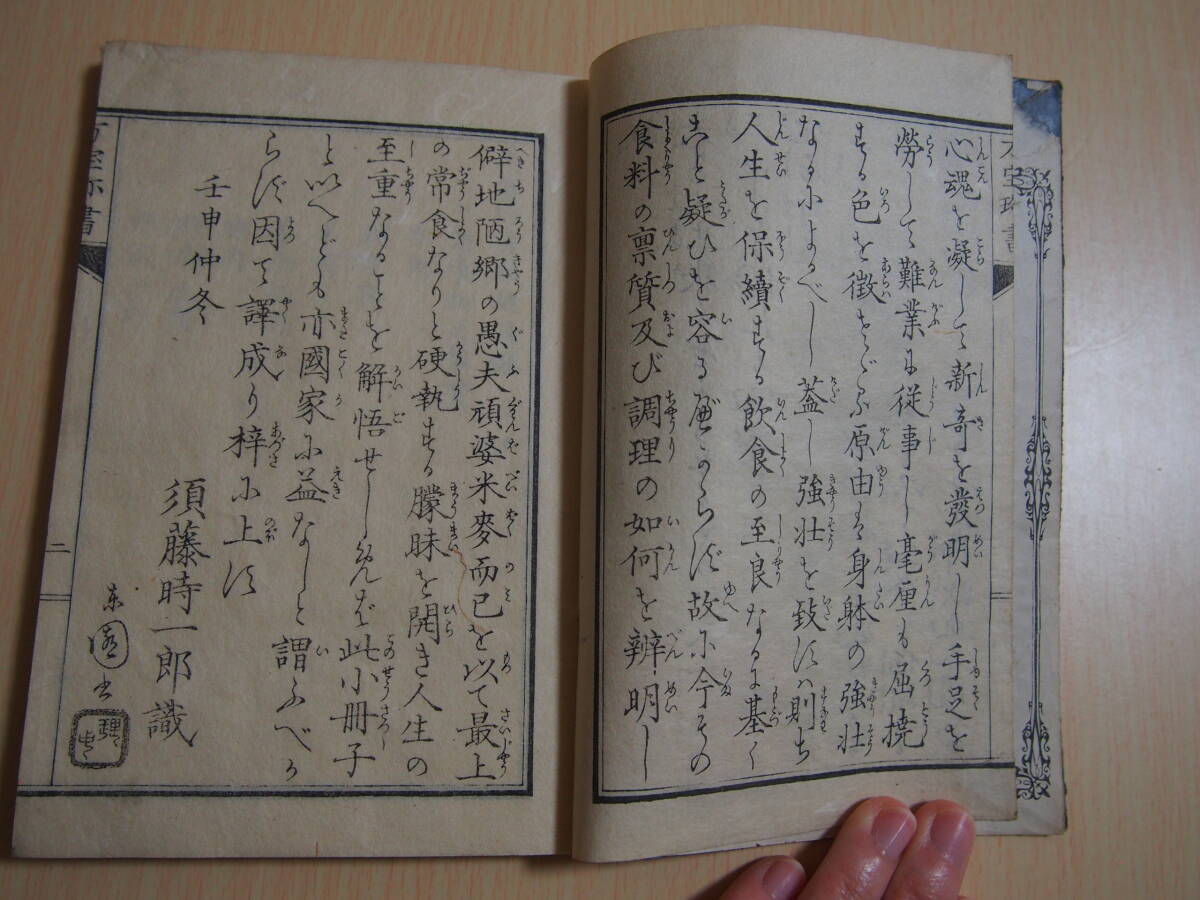 心魂を凝して新奇を發明し手足を
勞して難業に従事し毫厘も屈撓
する色を徴せざる原由は身躰の強壮
なるによるべし蓋し強壮を致すハ則ち
人生を保續する飲食の至良なるに基く
こと疑ひを容る可からず故に今その
食料の禀質及び調理の如何を辨明し
僻地陋郷の愚夫頑婆米麥而已を以て最上
の常食なりと硬執する朦昧を開き人生の
至重なることを解悟せしめんが此小册子
といへども亦國家に益なしと謂ふべか
らず因て譯成り梓に上す
壬申仲冬
須藤時一郎識
東園書
二